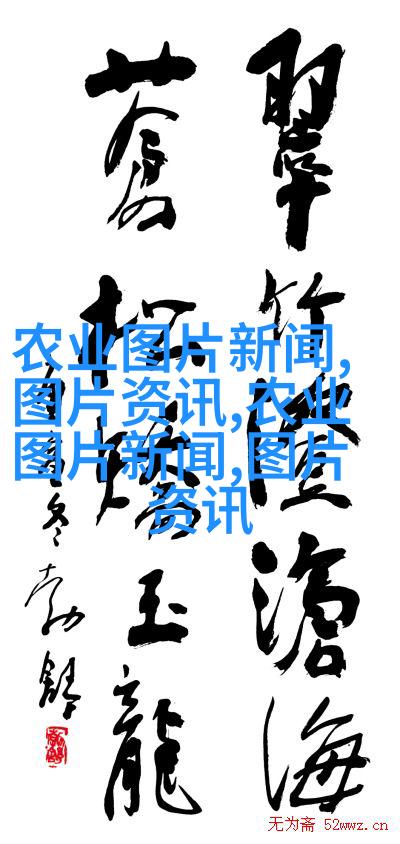 翠竹滄海
蒼松玉龍
冬
农业图片新闻,
图片资讯,农业
图片新闻,图片
资讯
无为斋 52wwz.cn